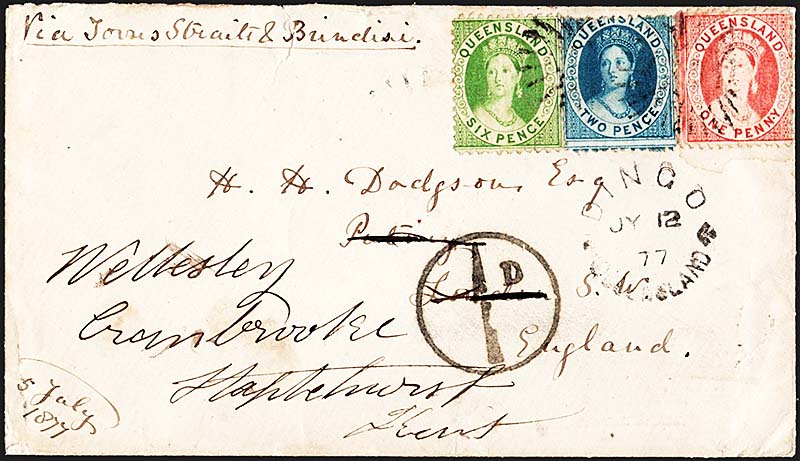 Via Torres Straits & Brindisi.
QUEENSLAND
SIX PENCE
QUEENSLAND
TWO PENCE
QUEENSLAND
ONE PENNY
H. H. Dodgson, Esq
DINGO
JY 12
77
QUEENSLAND
1 D
S. W.
England.
Wellesley
Cranbrooke
Staplehurst
Kent
5 July
1877